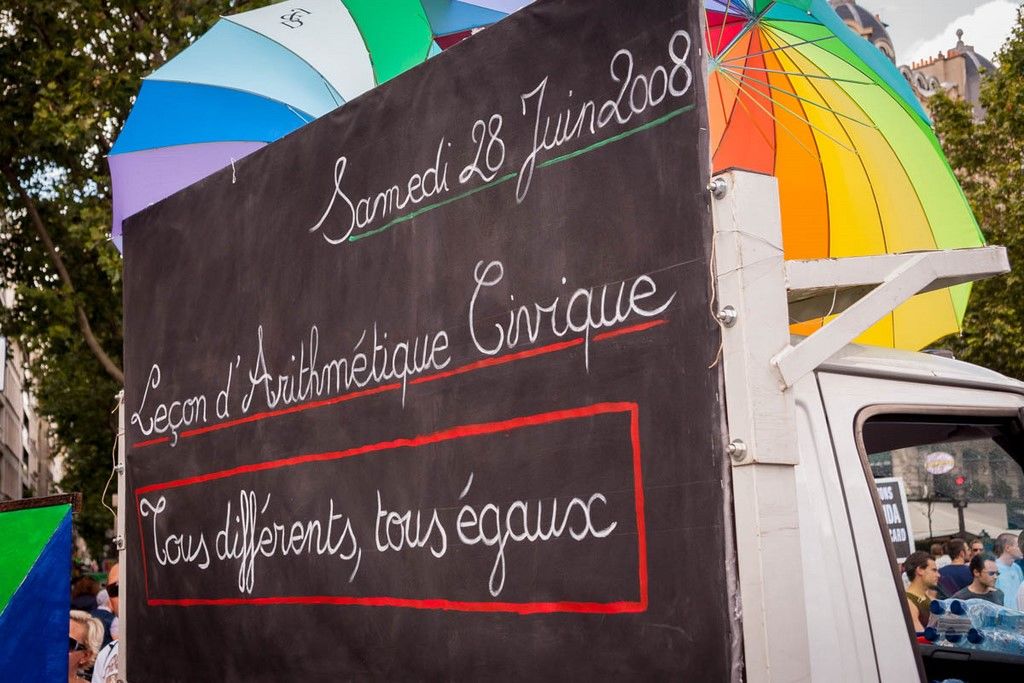 Samedi 28 Juin 2008
Leçon d'Arithmétique Civique
Tous différents, tous égaux